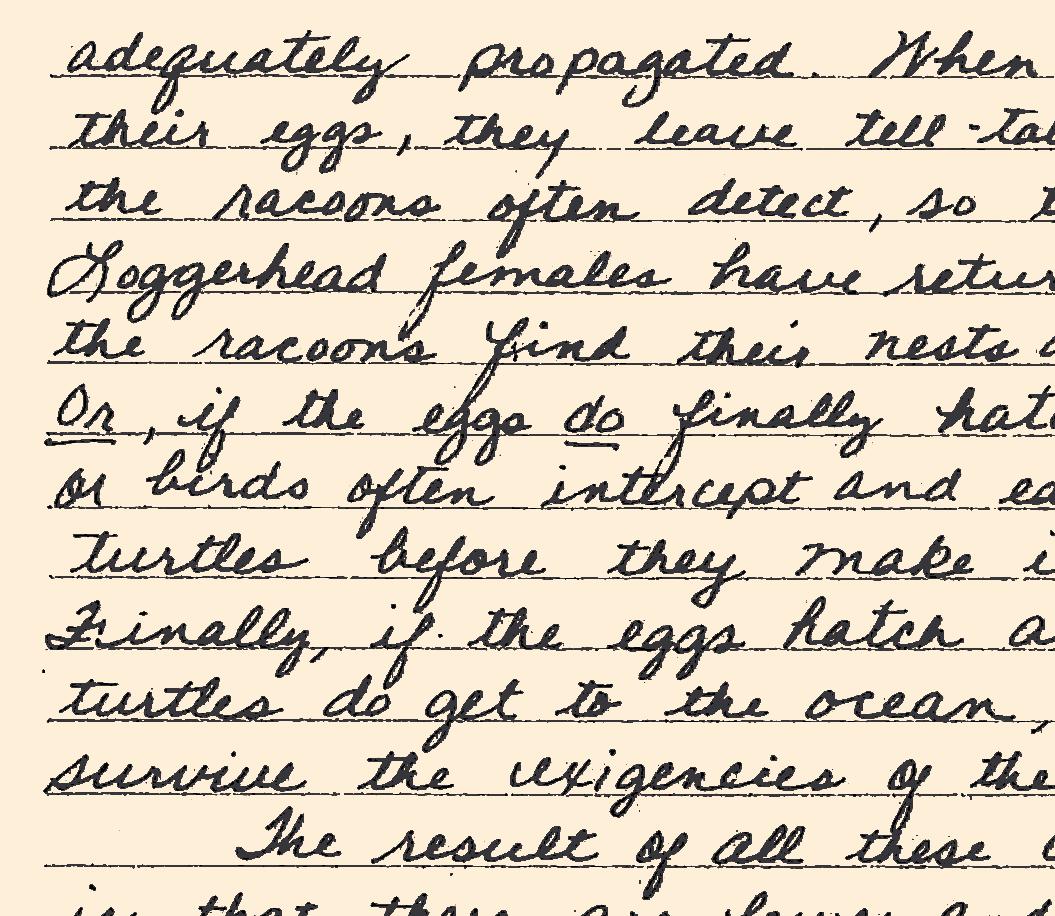 adequately propagated. When
their eggs, they leave tell-
the racoons often detect, so
Loggerhead females have
the racoons find their nests
Or, if the eggs do finally
or birds often intercept and
turtles before they make
Finally, if the eggs hatch
turtles do get to the ocean,
survive the exigencies of the
The result of all these